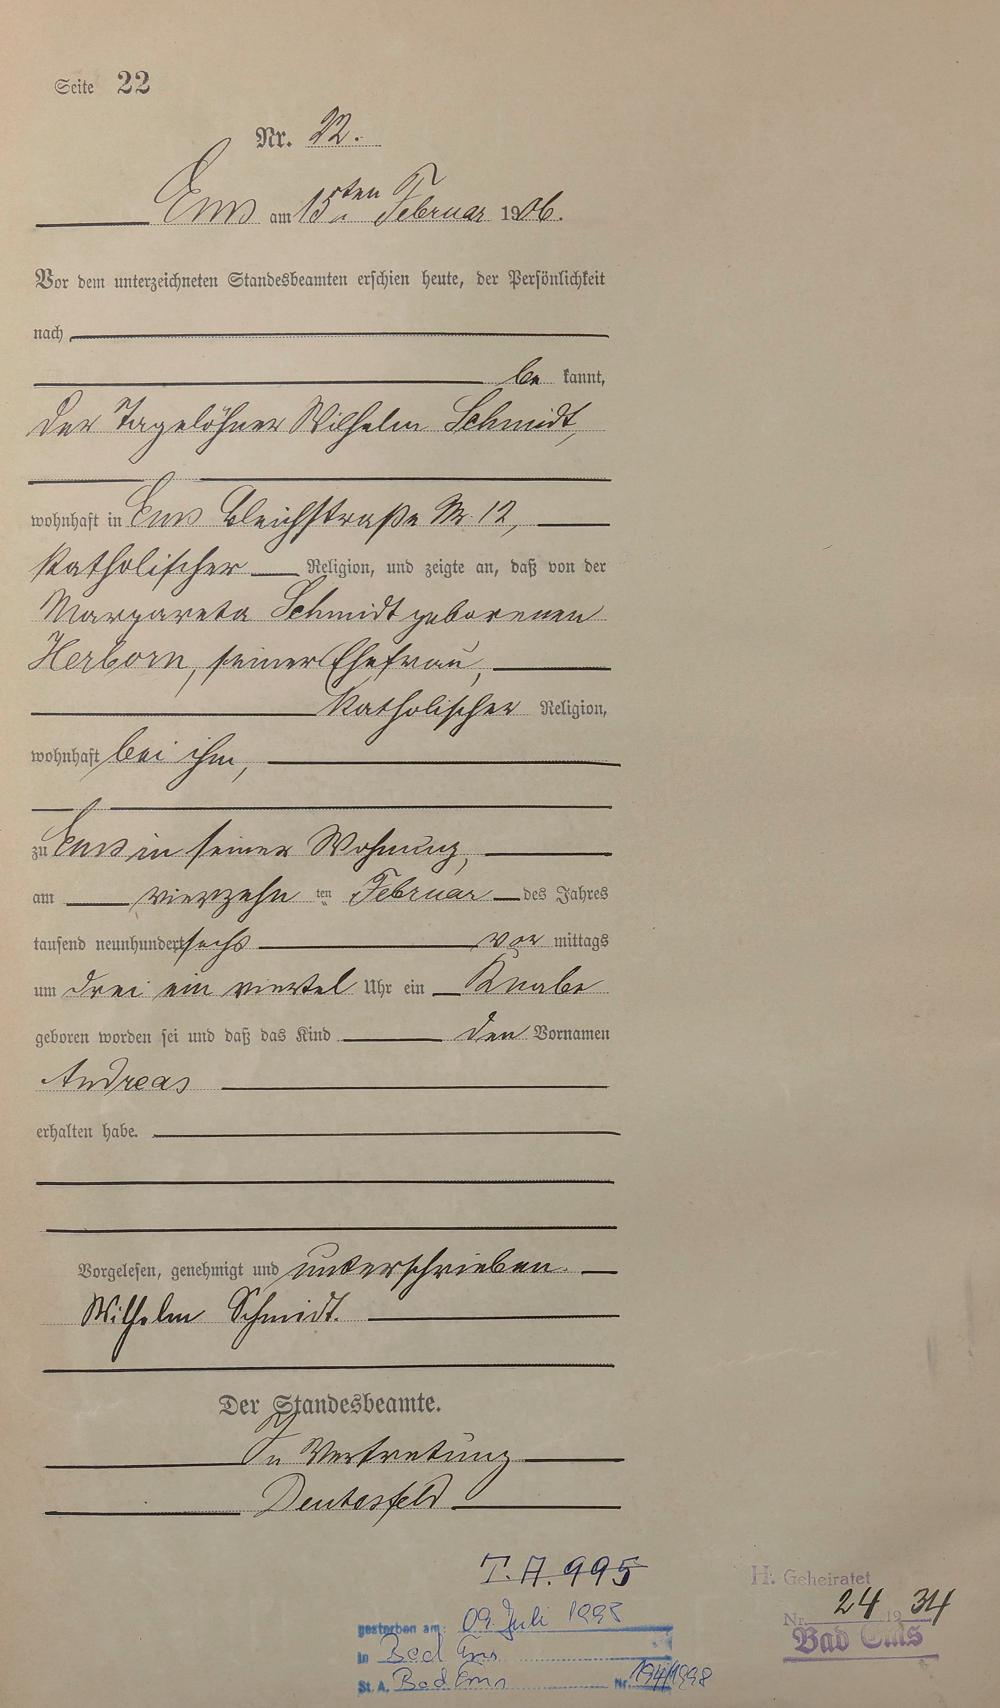 Seite 22
Nr. 22.
Ems am 15ten Februar 1906.
Vor dem unterzeichneten Standesbeamten erschien heute, der Persönlichkeit
nach
be kannt,
der Tagelöhner Wilhelm Schmidt,
wohnhaft in Ems Bleichstraße Nr. 12,
katholischer Religion, und zeigte an, daß von der
Margareta Schmidt geborenen
Herborn, seiner Ehefrau,
katholischer Religion,
wohnhaft bei ihm,
zu Ems in seiner Wohnung,
am vierzehn ten Februar des Jahres
tausend neunhundert sechs vor mittags
um drei ein viertel Uhr ein Knabe
geboren worden sei und daß das Kind den Vornamen
Andreas
erhalten habe.
Vorgelesen, genehmigt und unterschrieben.
Wilhelm Schmidt.
Der Standesbeamte.
In Vertretung
T. A. 995
H: Geheiratet
Nr. 24 19 34
Bad Ems
gestorben am: 09. Juli 1998
in Bad Ems
St. A. Bad Ems Nr. 194/1998